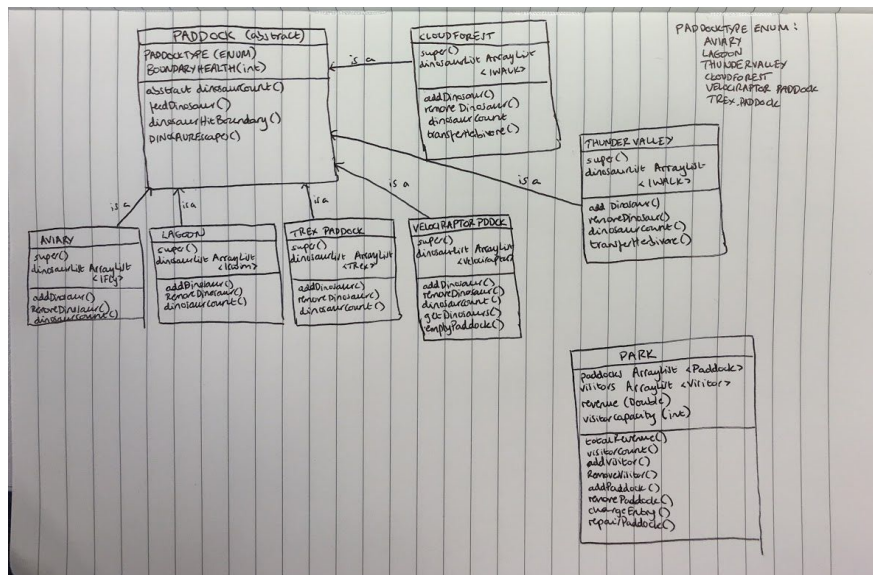 PADDOCK (abstract)
PADDOCKTYPE (ENUM)
BOUNDARYHEALTH (int)
abstract dinosaurCount()
feedDinosaur()
dinosaurHitBoundary()
DINOSAUREscape()
is a
CLOUDFOREST
super()
dinosaurList ArrayList
<IWALK>
addDinosaur()
remove Dinosaur()
dinosaurCount
transferHerbivore()
PADDOCKTYPE ENUM:
AVIARY
LAGOON
THUNDERVALLEY
CLOUDFOREST
VELOCIRAPTOR PADDOCK
TREX.PADDOCK
THUNDERVALLEY
super()
dinosaurList ArrayList
<IWALK>
add Dinosaur()
removeDinosaur()
dinosaurCount()
transferHerbivore()
is a
is a
is a
is a
is a
AVIARY
super()
dinosaurList ArrayList
<IFly>
addDinosaur()
RemoveDinosaur()
dinosaurCount()
LAGOON
super()
dinosaurList ArrayList
<ISwim>
addDinosaur()
RemoveDinosaur()
dinosaurCount()
TREX PADDOCK
super()
dinosaurList ArrayList
<TRex>
addDinosaur()
removeDinosaur()
dinosaurCount()
VELOCIRAPTOR PDDCK
super()
dinosaurList ArrayList
<Velociraptor>
addDinosaur()
removeDinosaur()
dinosaurCount()
getDinosaurs()
emptyPaddock()
PARK
paddocks ArrayList <Paddock>
visitors ArrayList <Visitor>
revenue (Double)
visitorCapacity (int)
totalRevenue()
visitorCount()
addVisitor()
RemoveVisitor()
addPaddock()
removePaddock()
chargeEntry()
repairPaddock()